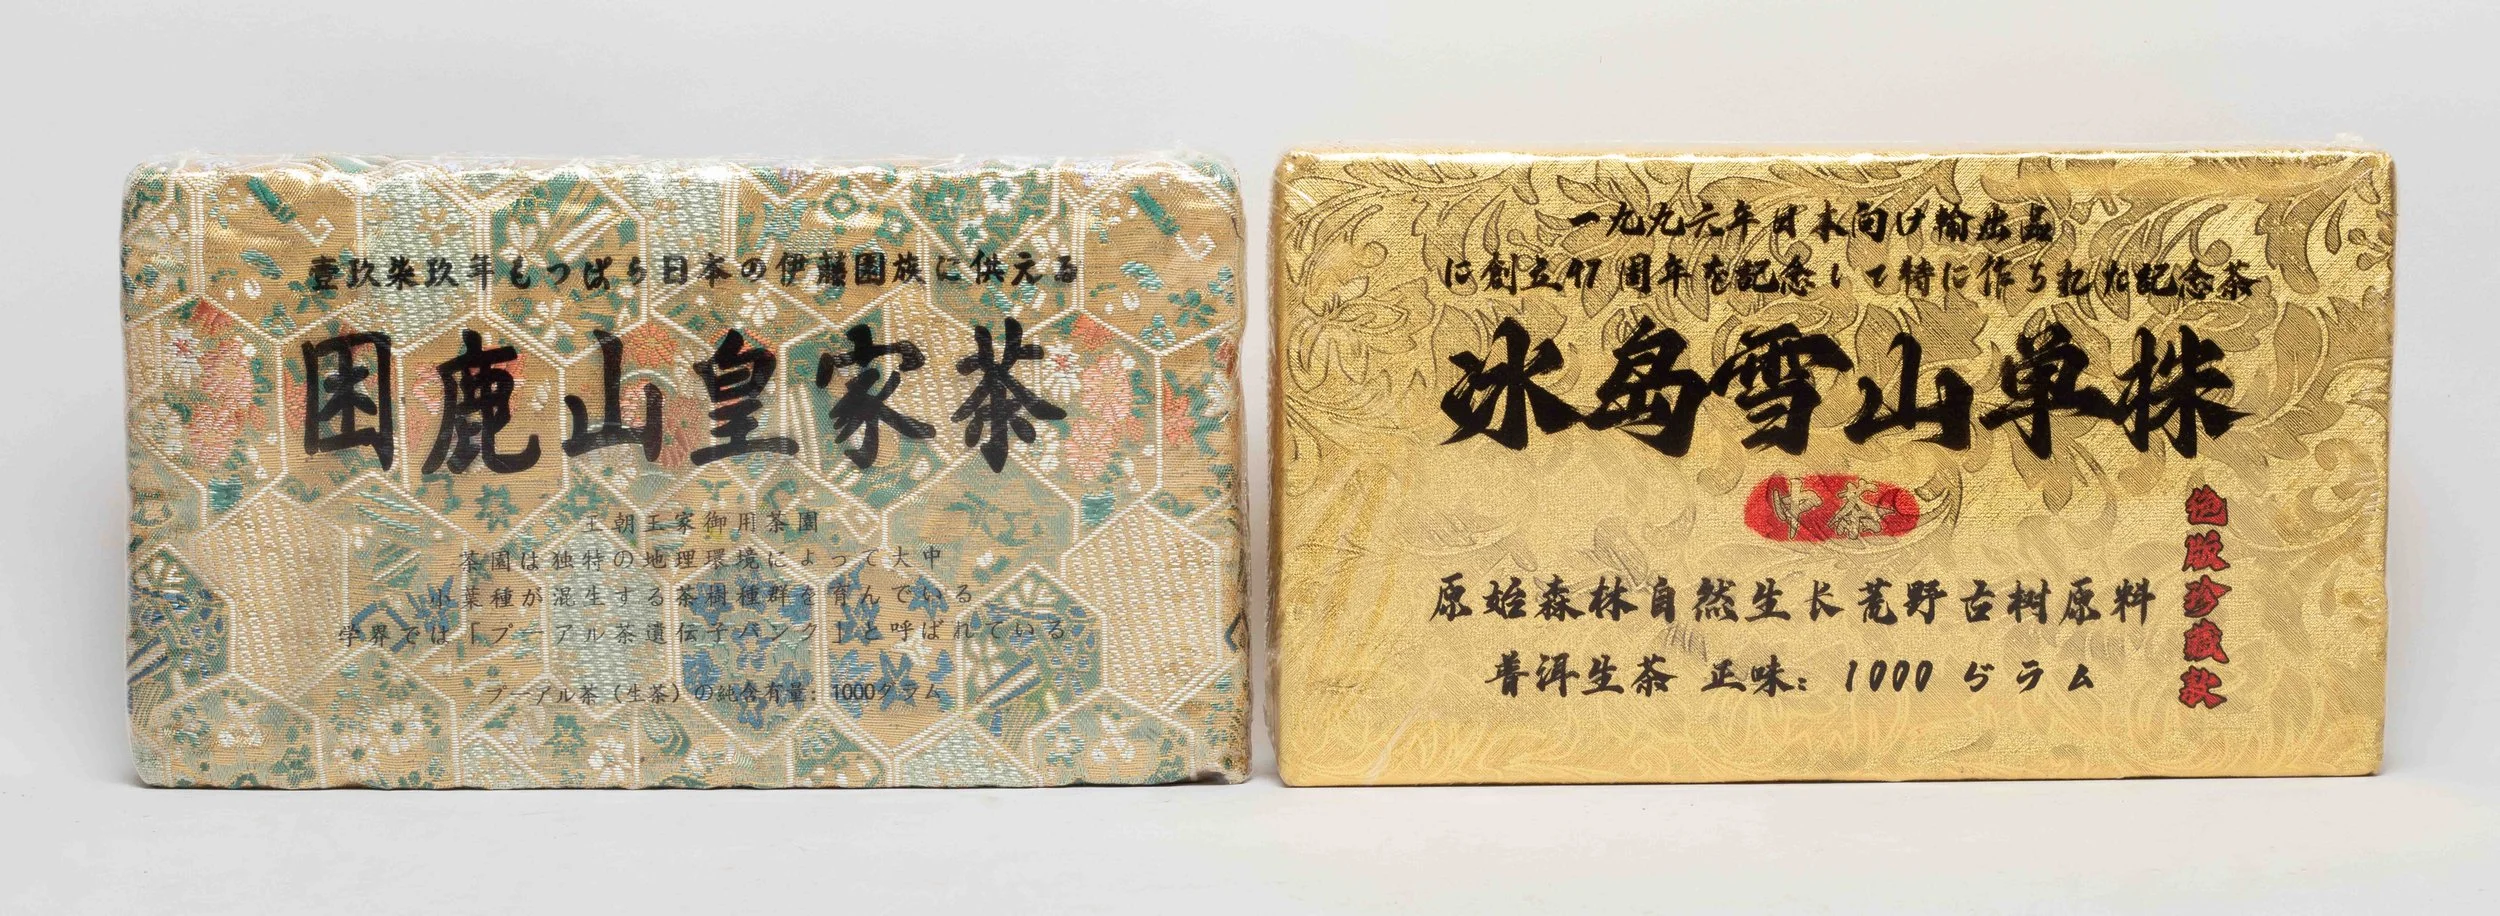 壹玖柒玖年もっぱら日本の伊藤園族に供える
困鹿山皇家茶
王朝王家御用茶園
茶園は独特の地理環境によって大中
小葉種が混生する茶樹種群を育んでいる
学界では「プーアル茶遺伝子バンク」と呼ばれている
プーアル茶（生茶）の純含有量：1000グラム
一九九六年日本向け輸出品
に創立47周年を記念して特に作られた記念茶
冰岛雪山单株
中茶
绝版珍藏款
原始森林自然生长荒野古树原料
普洱生茶 正味：1000 ぢラム